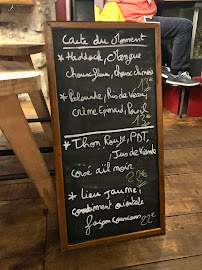 Carte du Moment
* Haddock, Mangue
choux blanc, choux chinois
12€
* Palourde, Ris de Veau,
crème Epinard, Persil
13€
* Thon Rouge, PDT,
Jus de Viande
coco ail noir
22€
* Lieu Jaune,
condiment orientale
façon couscous 22€